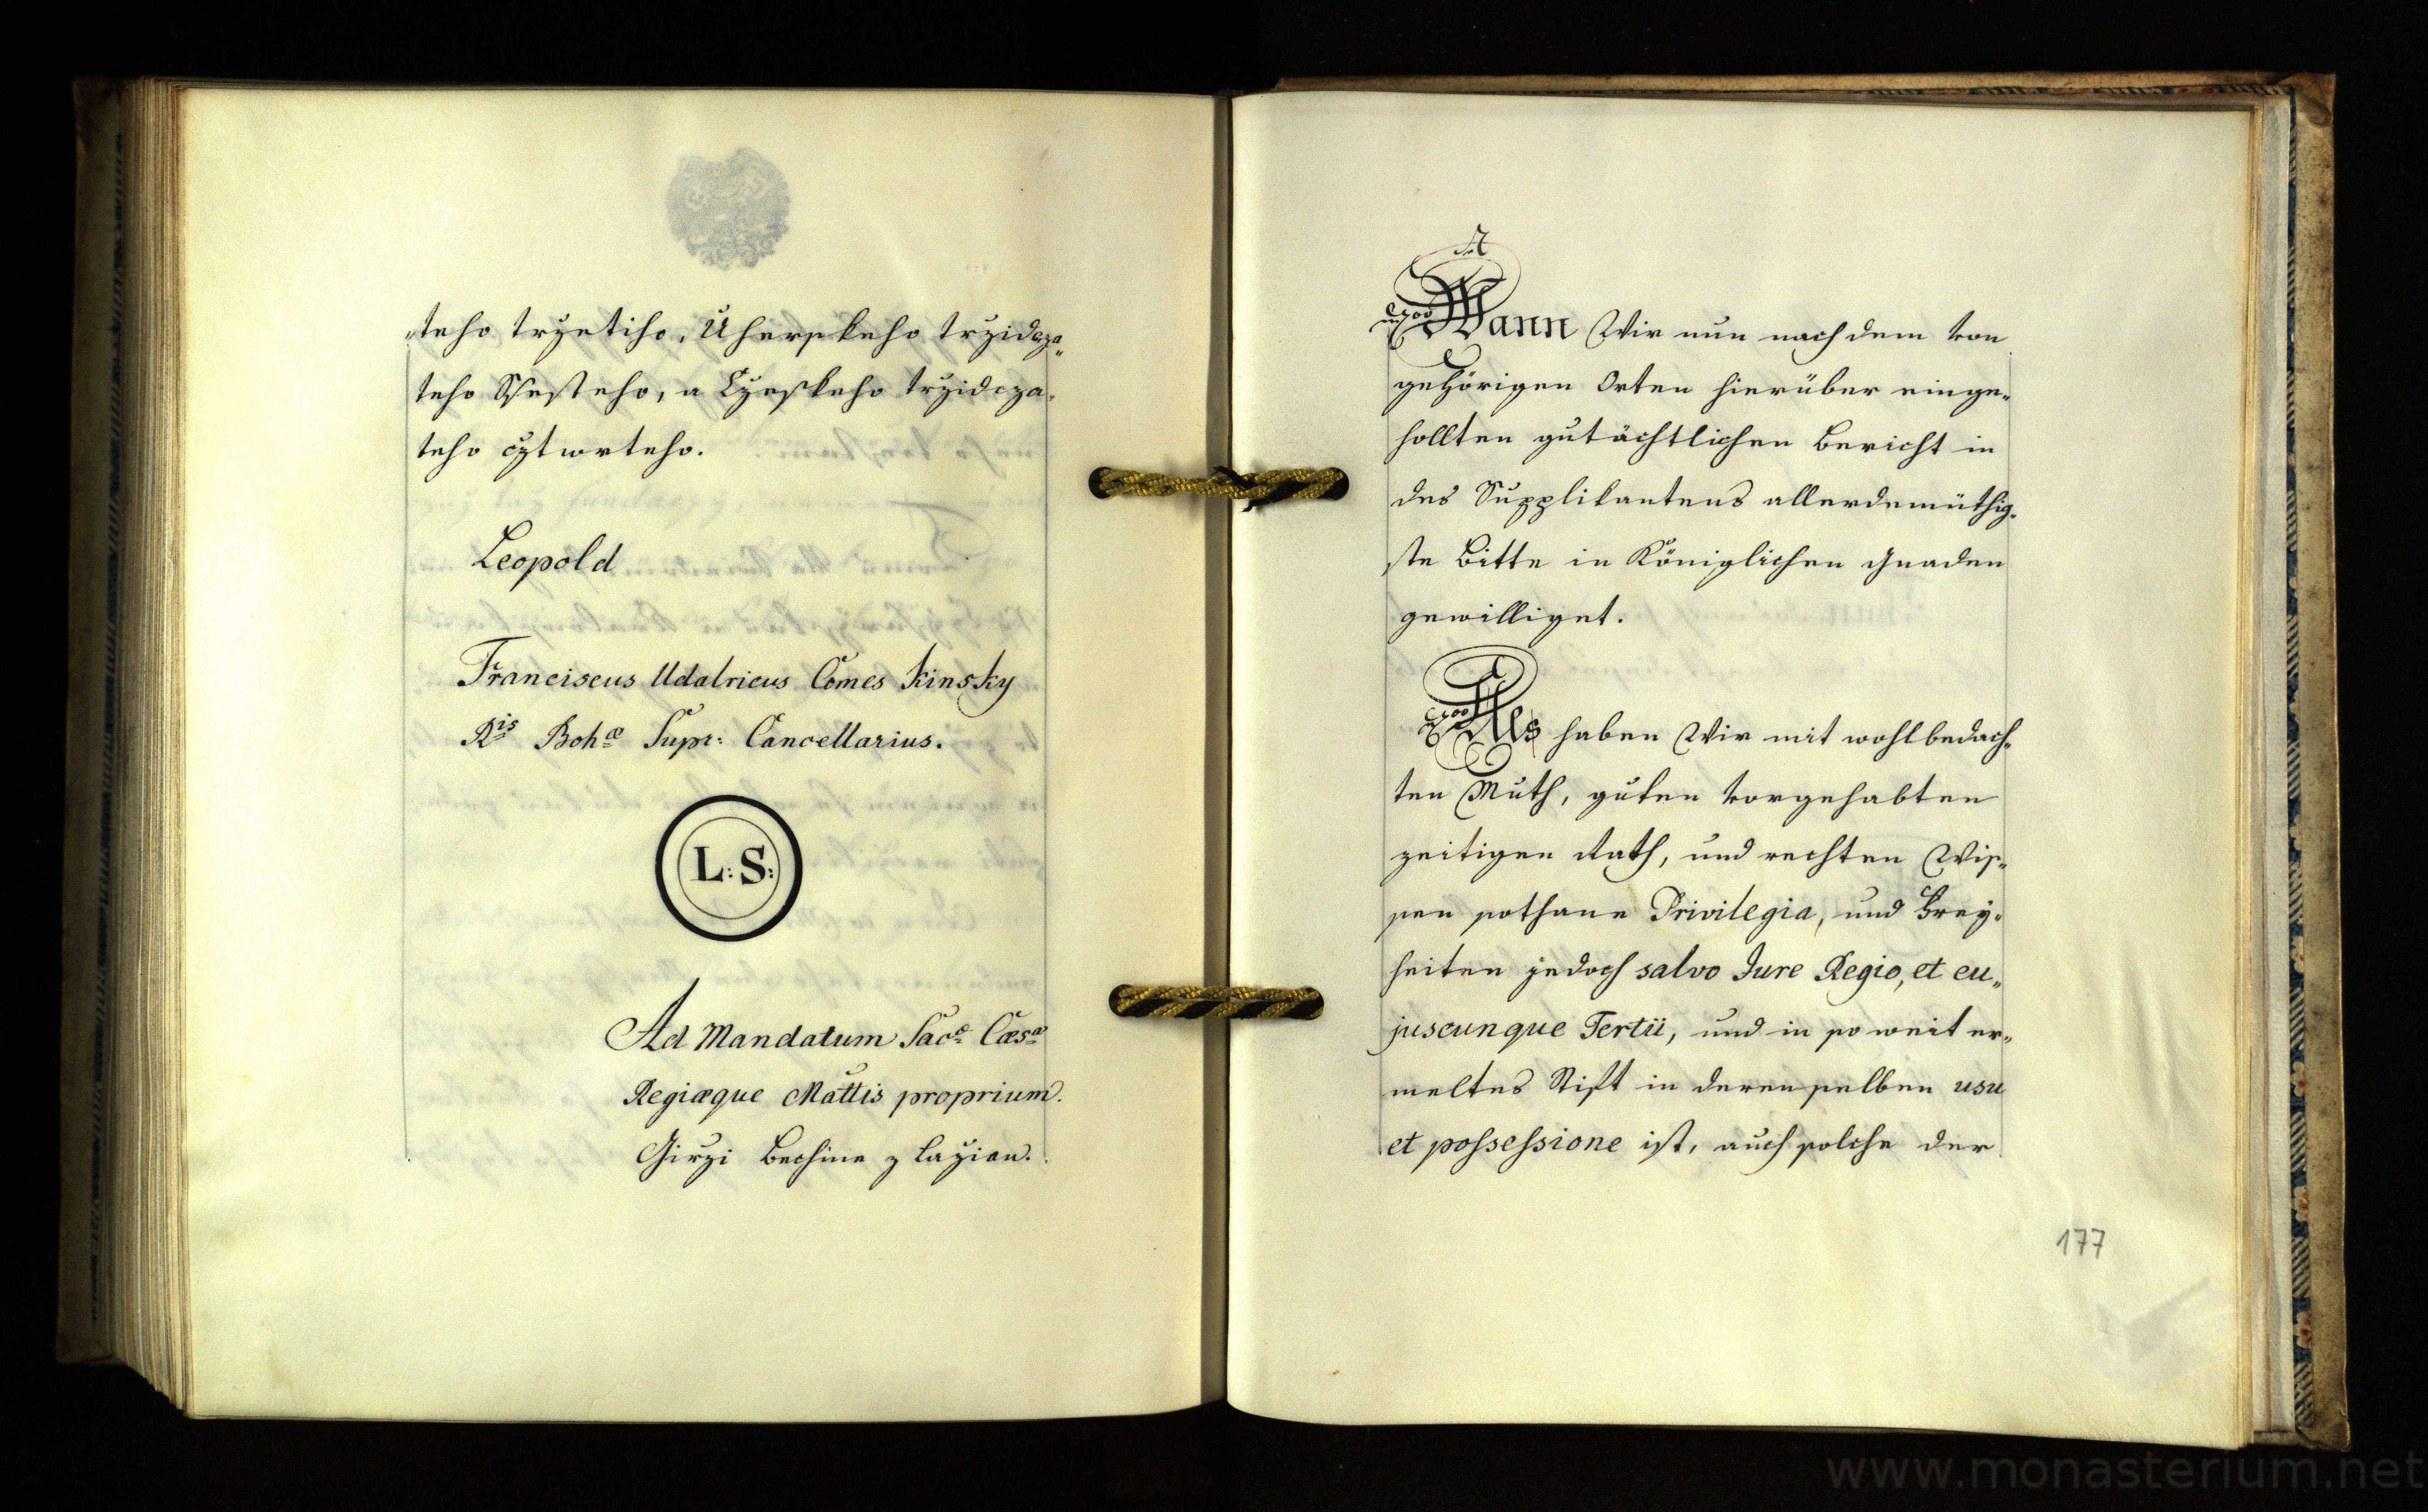 „teho trzetiho, Uherskeho trzidcza„
teho Ssesteho, a Czeskeho trzidcza„
teho cztwrteho.
Leopold
Franciscus Udalricus Comes Kinsky
R<sup>is</sup> Boh<sup>æ</sup> Supr: Cancellarius.
L: S:
Ad Mandatum Sac<sup>æ</sup> Cæs<sup>æ</sup>
Regiæque Mattis proprium.
Girzi Bechine z Lazian.
Wann Wir nun nach dem von
gehörigen Orten hierüber einge„
hollten gutächtlichen Bericht in
des Supplikantens allerdemüthig„
ste Bitte in Königlichen Gnaden
gewilliget.
Als haben Wir mit wohlbedach„
ten Muth, guten vorgehabten
zeitigen Rath, und rechten Wis„
sen sothane Privilegia, und Frey„
heiten jedoch salvo Jure Regio, et cu„
juscunque Tertii, und in so weit er„
meltes Stift in derenselben usu
et possessione ist, auch solche der
177
www.monasterium.net